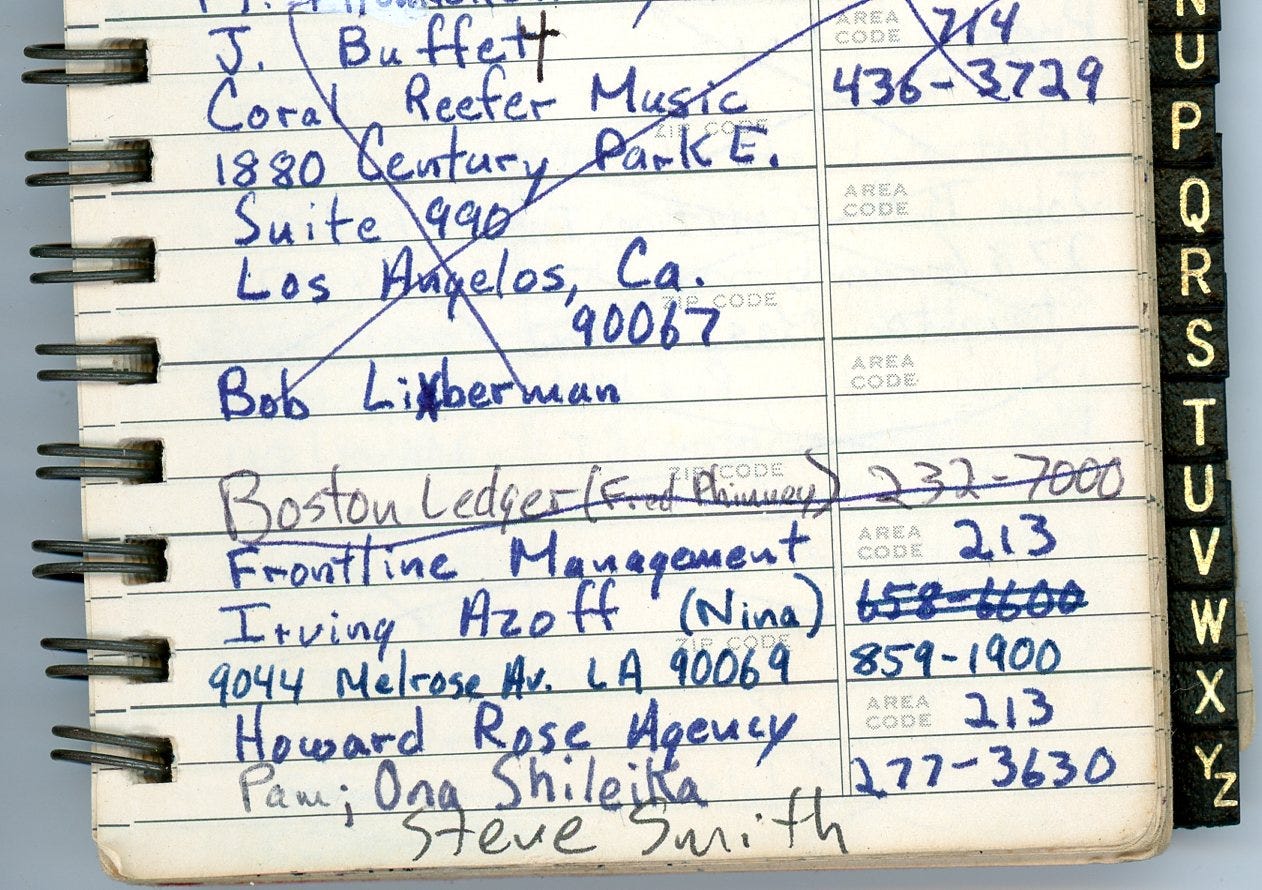 J. Buffett
AREA CODE 714
Coral Reefer Music
436-3729
ZIP CODE
1880 Century Park E.
Suite 990
AREA CODE
Los Angelos, Ca.
ZIP CODE
90067
AREA CODE
Bob Liberman
ZIP CODE
Boston Ledger (Fred Phinney) 232-7000
Frontline Management
AREA CODE 213
Irving Azoff (Nina)
658-6600
ZIP CODE
9044 Melrose Av. LA 90069
859-1900
AREA CODE 213
Howard Rose Agency
Pam; Ona Shileika
277-3630
Steve Smith
N
O
P
Q
R
S
T
U
V
W
X
Y
Z